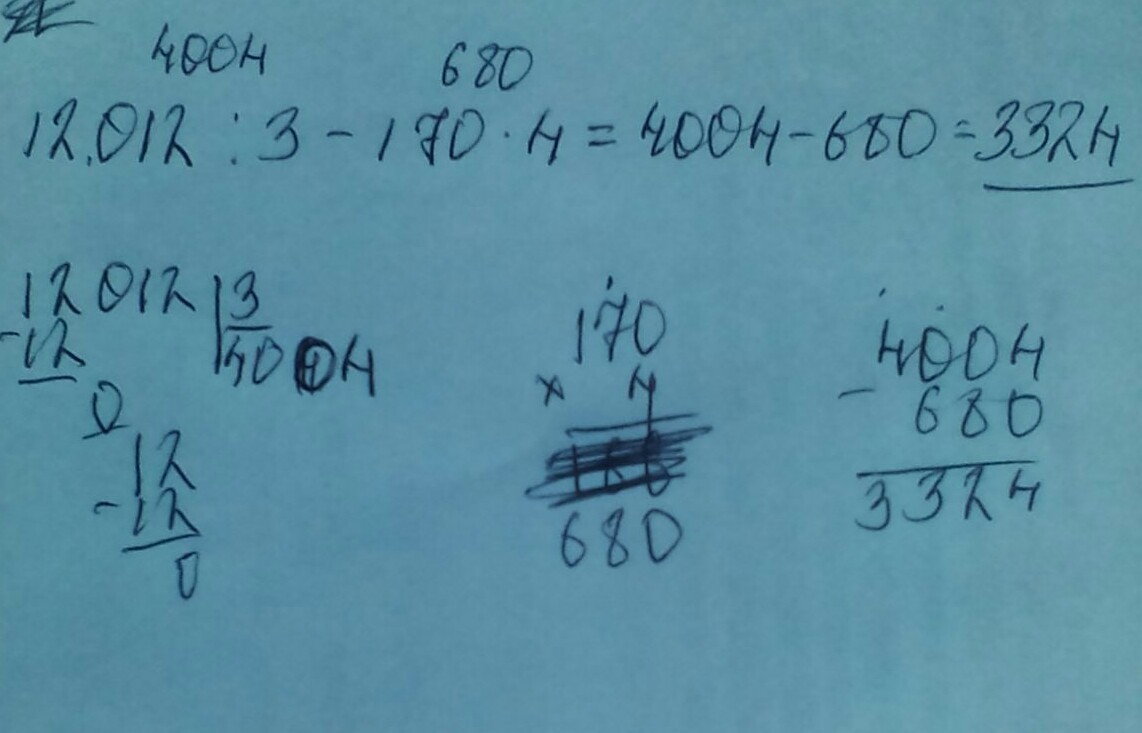 4004 680
12.012 : 3 - 170 · 4 = 4004 - 680 = 3324
12012 | 3
-12 4004
0
12
-12
0
170
x 4
680
4004
- 680
3324